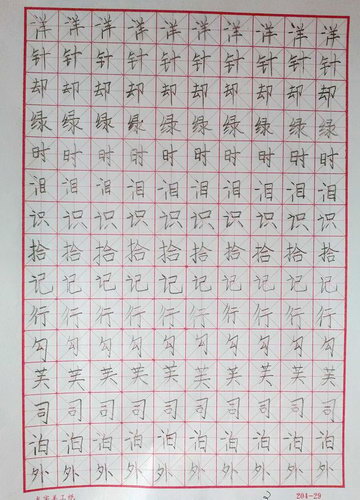 洋洋洋洋洋洋洋洋洋洋
针针针针针针针针针针
却却却却却却却却却却
绿绿绿绿绿绿绿绿绿绿
时时时时时时时时时时
泪泪泪泪泪泪泪泪泪泪
识识识识识识识识识识
拾拾拾拾拾拾拾拾拾拾
记记记记记记记记记记
行行行行行行行行行行
勾勾勾勾勾勾勾勾勾勾
芙芙芙芙芙芙芙芙芙芙
司司司司司司司司司司
泊泊泊泊泊泊泊泊泊泊
外外外外外外外外外外
204-29